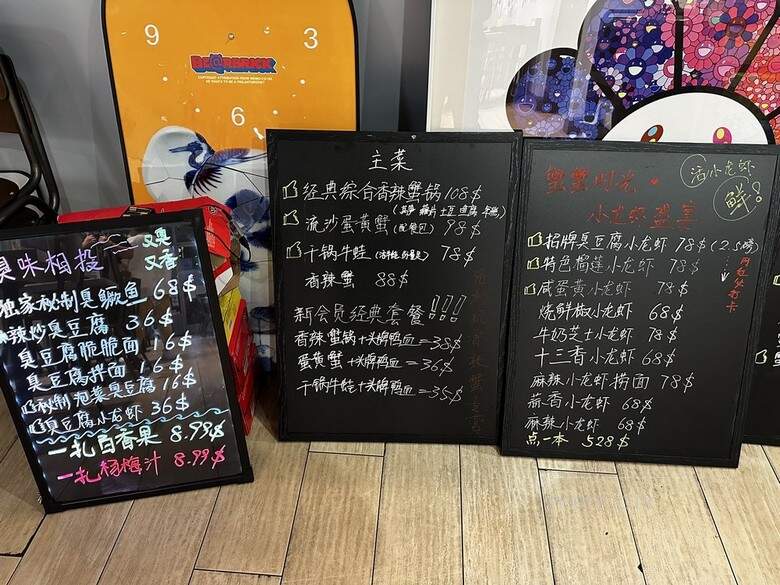 9
3
6
BE@RBRICK
臭味相投
又臭
又香
独家秘制臭鳜鱼 68$
辣炒臭豆腐 36$
臭豆腐脆脆面 16$
臭豆腐拌面 16$
秘制泡菜臭豆腐 16$
臭豆腐小龙虾 36$
一扎百香果 8.99$
一扎杨梅汁 8.99$
主菜
经典综合香辣蟹锅 108$
流沙蛋黄蟹 98$
干锅牛蛙 78$
香辣蟹 88$
新会员经典套餐!!!
香辣蟹锅+头牌鸭血=38$
蛋黄蟹+头牌鸭血=36$
干锅牛蛙+头牌鸭血=35$
蟹蟹时光
活小龙虾
鲜!
小龙虾盛宴
招牌臭豆腐小龙虾 78$(2.5磅)
特色榴莲小龙虾 78$
咸蛋黄小龙虾 78$
烧鲜椒小龙虾 68$
牛奶芝士小龙虾 78$
十三香小龙虾 68$
麻辣小龙虾捞面 78$
蒜香小龙虾 68$
麻辣小龙虾 68$
点一本 528$